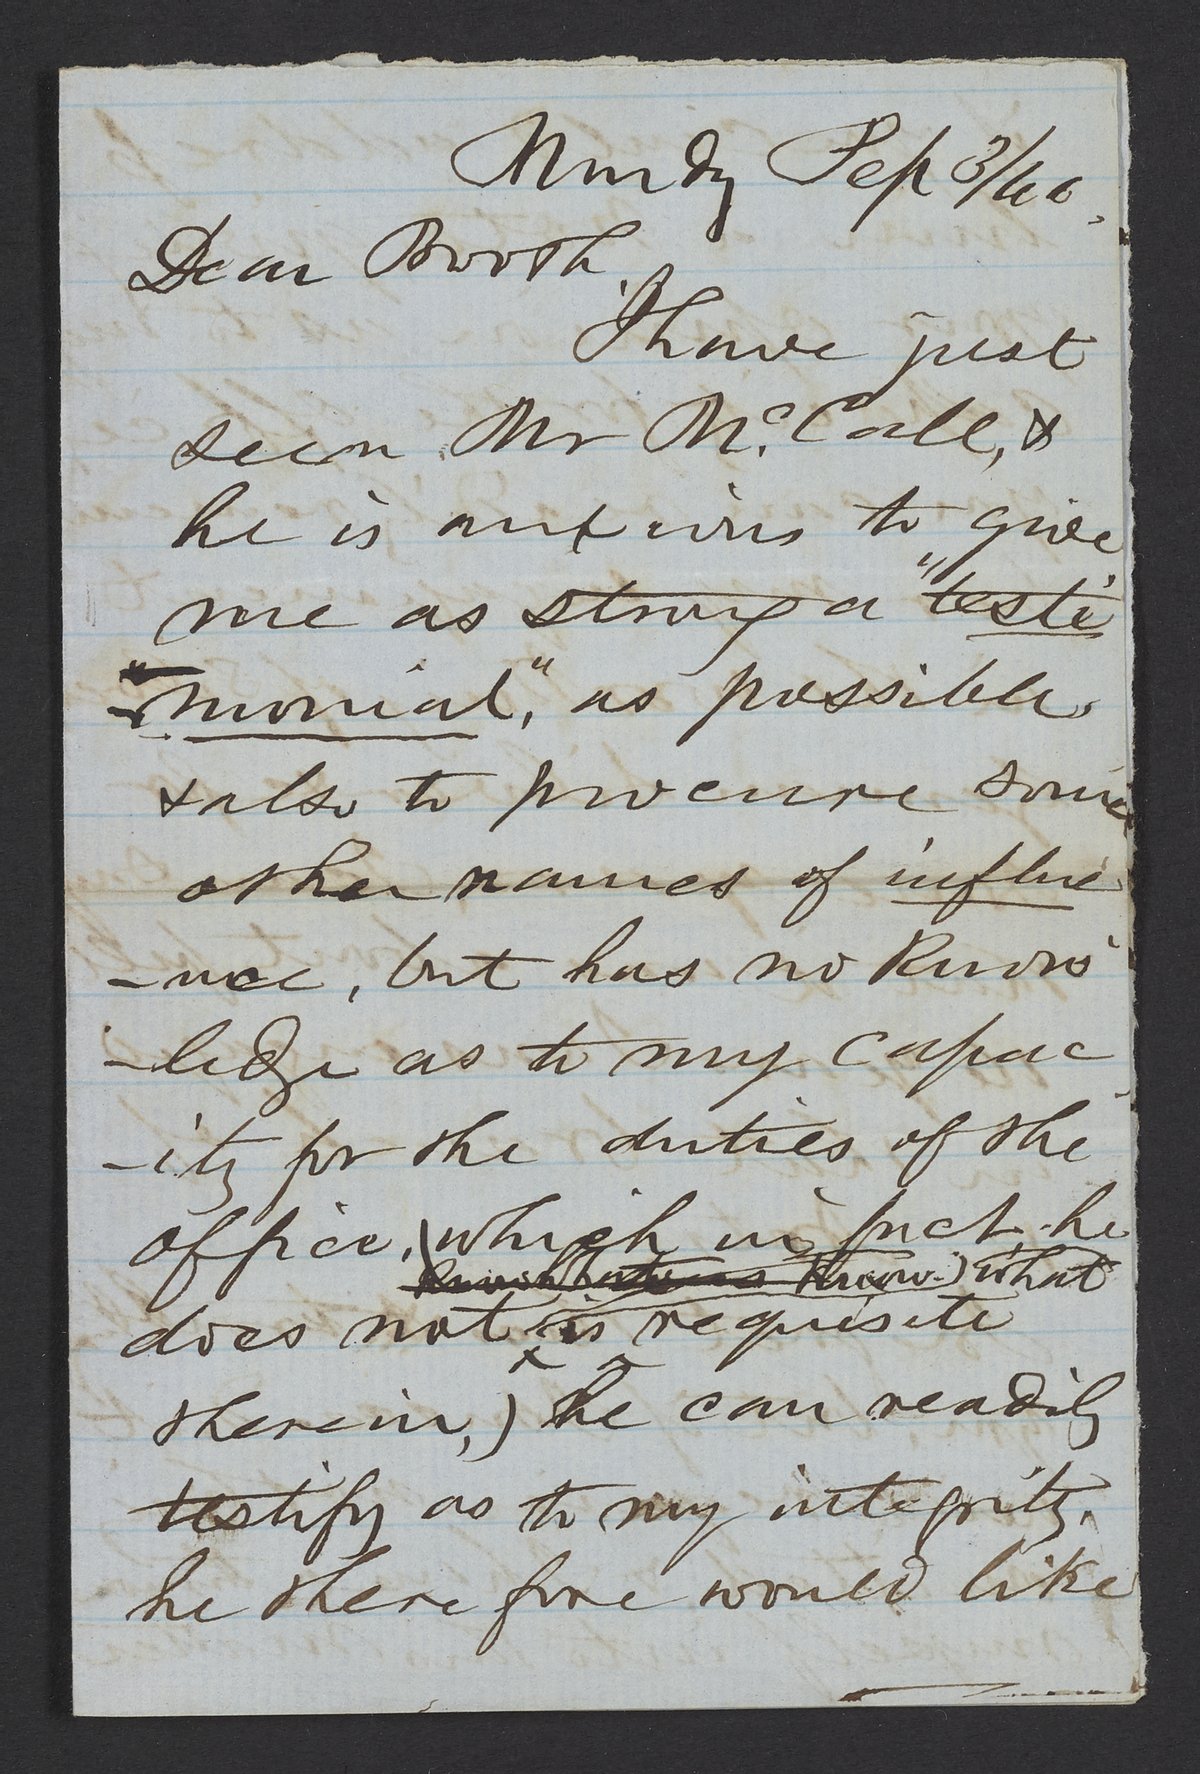 Mondy Sep 3/60.
Dear Booth
I have just
seen Mr McCall, &
he is anxious to give
me as strong a "testi
-monial", as possible
& also to procure some
other names of influe
-nce, but has no know
-ledge as to my capac
-ity for the duties of the
office, (which in fact he
know.) what
does not is requisite
therein,) he can readily
testify as to my integrity.
he therefore would like